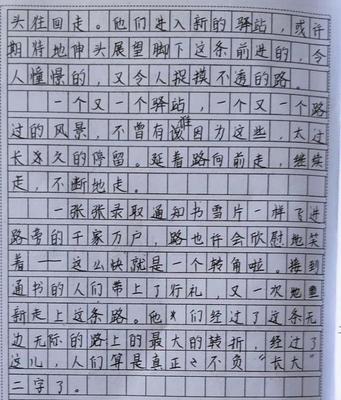 头往回走。他们进入新的驿站，或许
期待地伸头展望脚下这条前进的，令
人憧憬的，又令人捉摸不透的路。
一个又一个驿站，一个又一个路
过的风景，不曾有谁因为这些，太过
长久的停留。延着路向前走，继续
走，不断地走。
一张张录取通知书雪片一样飞进
路旁的千家万户，路也许会欣慰地笑
着——这么快就是一个转角啦。接到
通书的人们带上了行礼，又一次地重
新走上这条路。他们经过了这条无
边无际的路上的最大的转折，经过了
这儿，人们算是真正不负“长大”
二字了。